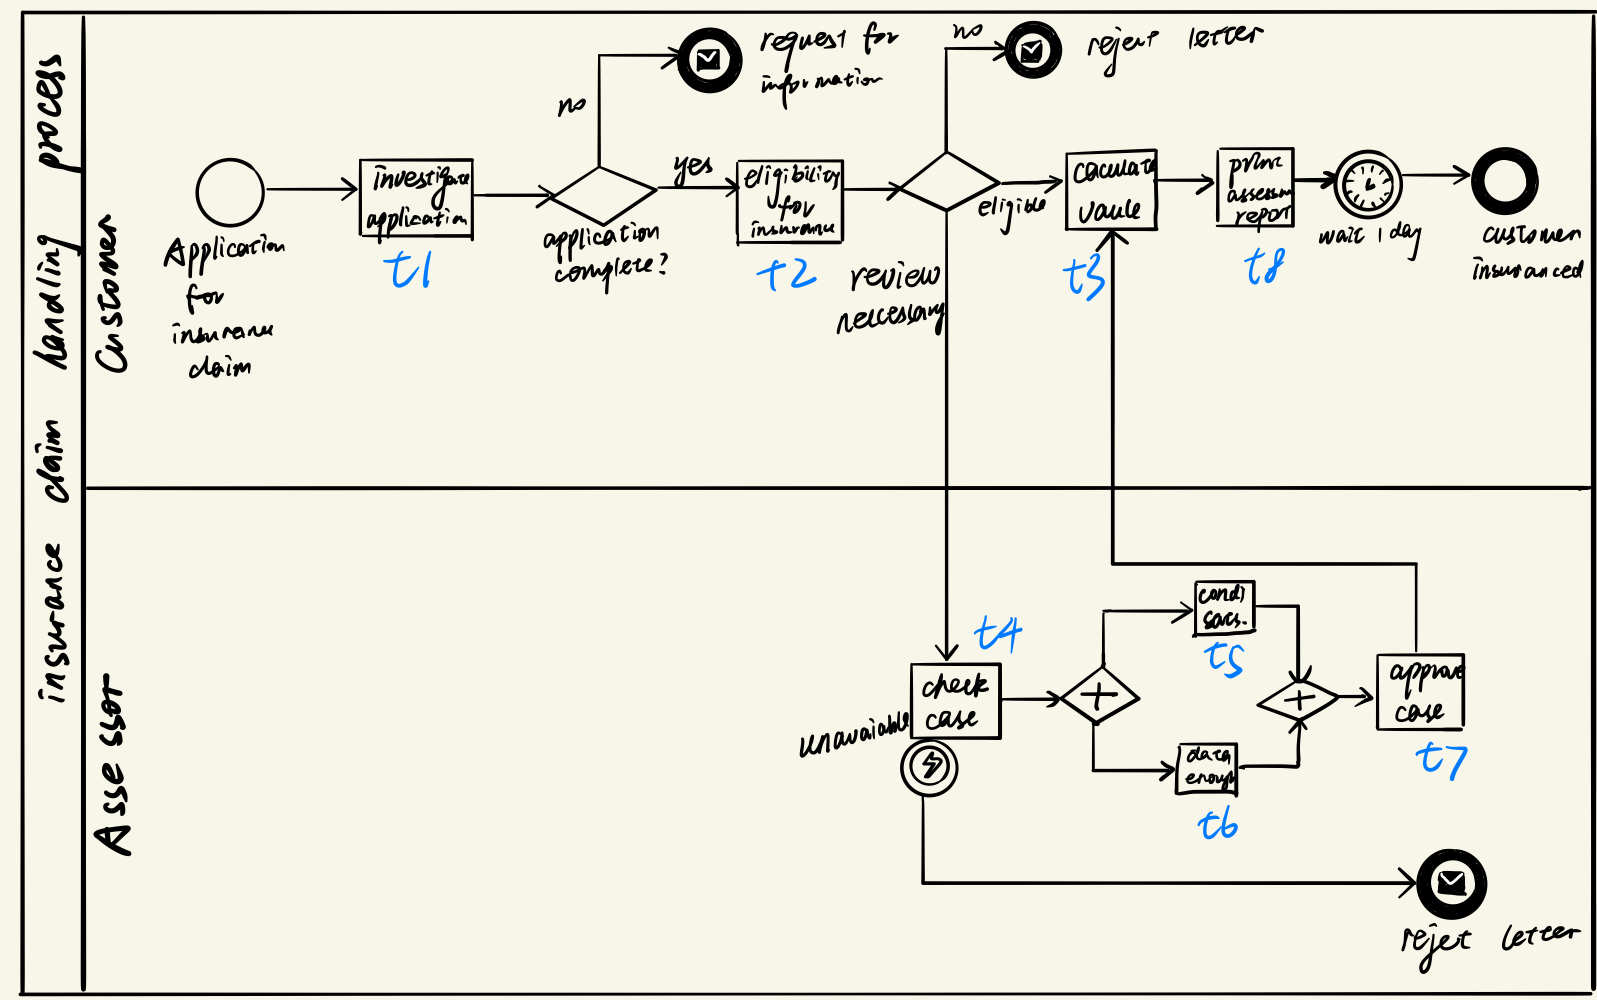 insurance claim handling process
Customer
Assessor
Application
for
insurance
claim
investigate
application
t1
no
application
complete?
yes
request for
information
eligibility
for
insurance
t2
no
reject letter
eligible
review
neccessary
caculate
vaule
t3
print
assessm
report
t8
wait 1 day
customer
insuranced
check
case
t4
unavaiable
condi
sacs.
t5
data
enough
t6
approve
case
t7
reject letter